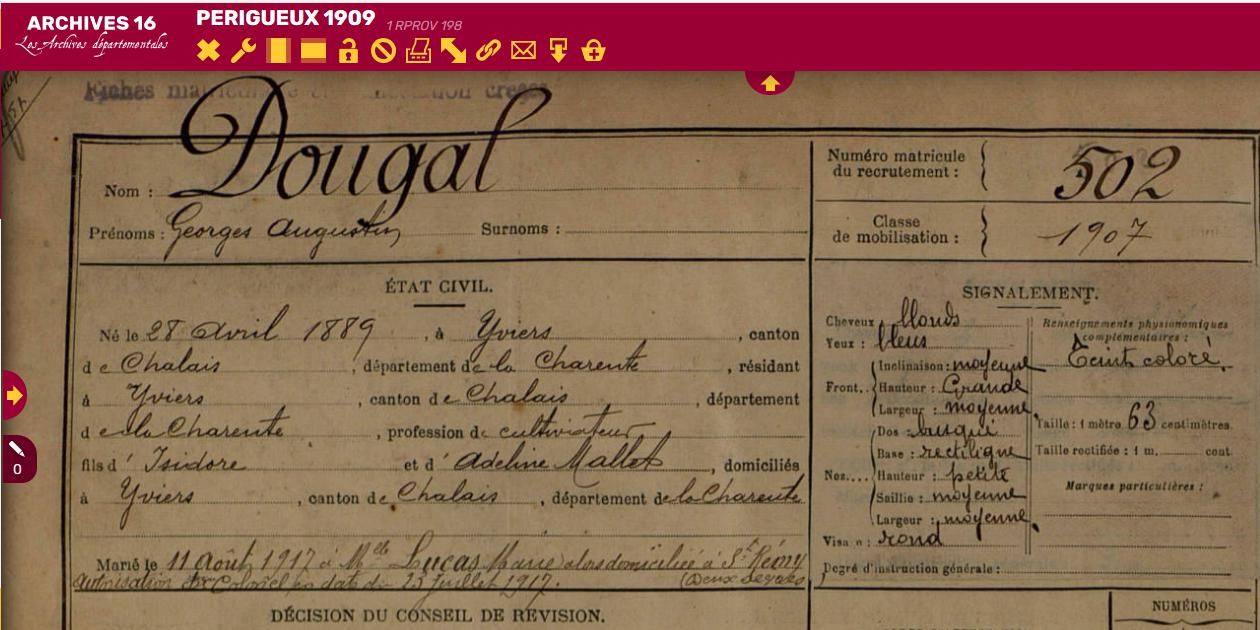 ARCHIVES 16
Les Archives départementales
PERIGUEUX 1909 1 RPROV 198
Dougal
Nom :
Prénoms : Georges Augustin Surnoms :
ÉTAT CIVIL.
Né le 28 Avril 1889, à Yviers, canton
de Chalais, département de la Charente, résidant
à Yviers, canton de Chalais, département
de la Charente, profession de cultivateur
fils d' Isidore et d' Adeline Mallet, domiciliés
à Yviers, canton de Chalais, département de la Charente
Marié le 11 Août 1917 à Mlle Lucas Marie alors domiciliée à St Rémy
autorisation du Colonel en date du 23 juillet 1917. (Deux Sèvres
DÉCISION DU CONSEIL DE RÉVISION.
Numéro matricule
du recrutement : 502
Classe
de mobilisation : 1907
SIGNALEMENT.
Cheveux : blonds
Yeux : bleus
Front.. Inclinaison : moyenne
Hauteur : Grande
Largeur : moyenne
Nez.... Dos : busqué
Base : rectiligne
Hauteur : petite
Saillie : moyenne
Largeur : moyenne
Visage : rond
Renseignements physionomiques
complémentaires :
Teint coloré.
Taille : 1 mètre 63 centimètres.
Taille rectifiée : 1 m. cent.
Marques particulières :
Degré d'instruction générale :
NUMÉROS
0